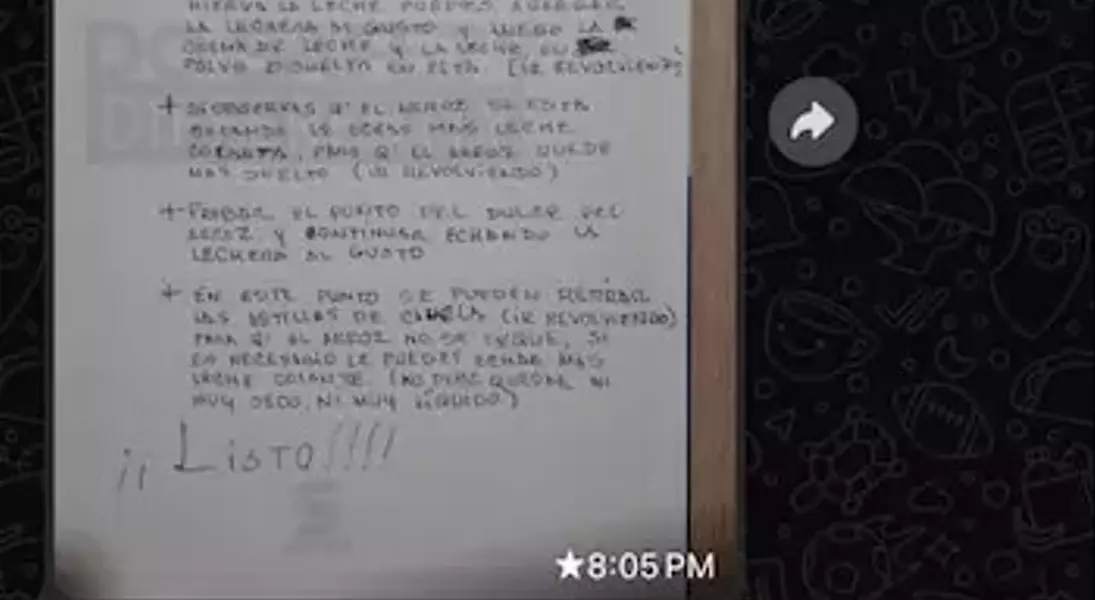 HIERVA LA LECHE PUEDES AGREGAR
LA LECHERA AL GUSTO Y LUEGO LA
CREMA DE LECHE Y LA LECHE EN
POLVO DISUELTA EN ESTA. (IR REVOLVIENDO
+ SI OBSERVAS Q' EL ARROZ SE ESTA
SECANDO LE ECHAS MAS LECHE
, PARA Q' EL ARROZ QUEDE
MAS SUELTO (IR REVOLVIENDO)
+ PROBAR EL PUNTO DEL DULCE DEL
ARROZ Y CONTINUAR ECHANDO LA
LECHERA AL GUSTO
+ EN ESTE PUNTO SE PUEDEN RETIRAR
LAS ASTILLAS DE CANELA (IR REVOLVIENDO)
PARA Q' EL ARROZ NO SE SEQUE, SI
ES NECESARIO LE PUEDES ECHAR MAS
LECHE (NO DEBE QUEDAR NI
MUY SECO, NI MUY LÍQUIDO)
¡¡ LISTO!!!!
★8:05 PM